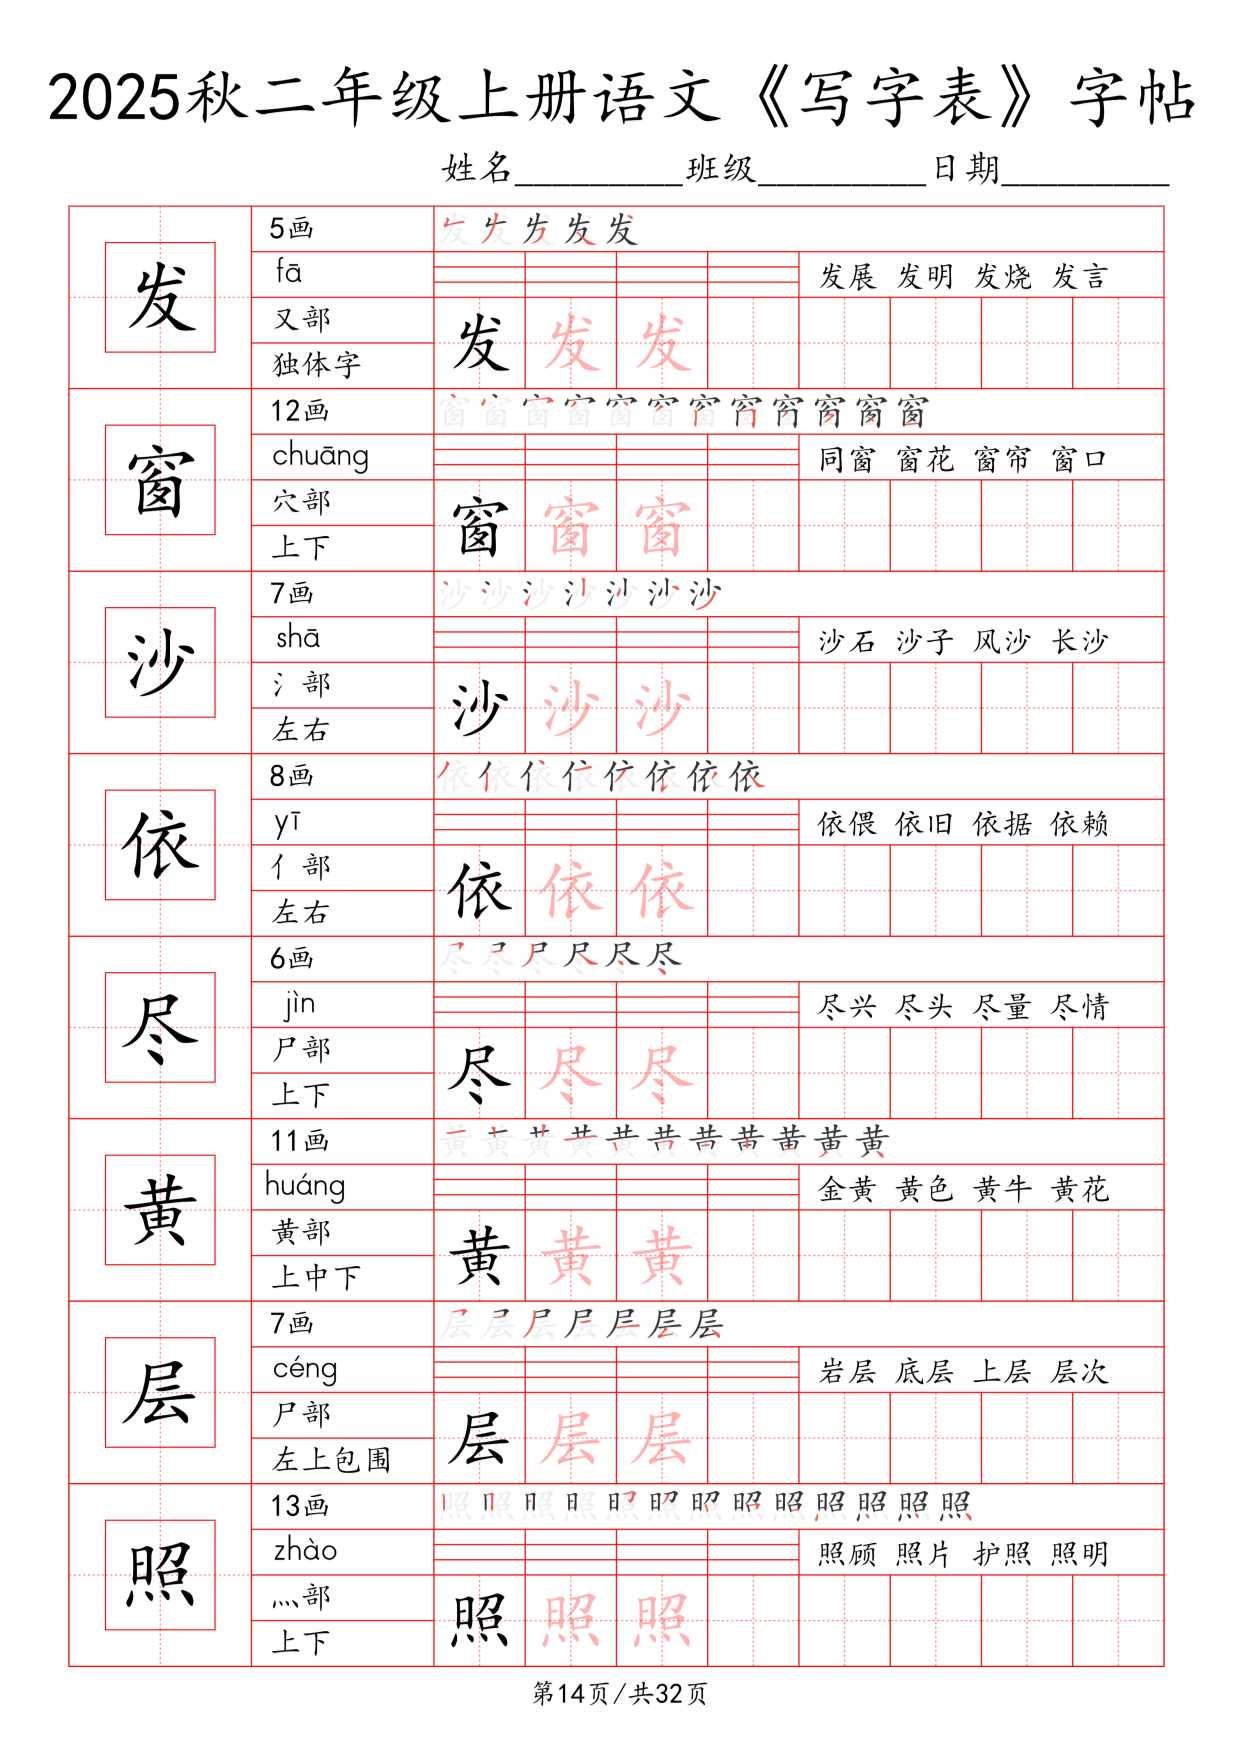 2025秋二年级上册语文《写字表》字帖
姓名_________班级_________日期_________
发
5画
发 发 发 发 发
fā
发展 发明 发烧 发言
又部
独体字
发 发 发
窗
12画
窗 窗 窗 窗 窗 窗 窗 窗 窗 窗 窗 窗
chuāng
同窗 窗花 窗帘 窗口
穴部
上下
窗 窗 窗
沙
7画
沙 沙 沙 沙 沙 沙 沙
shā
沙石 沙子 风沙 长沙
氵部
左右
沙 沙 沙
依
8画
依 依 依 依 依 依 依 依
yī
依偎 依旧 依据 依赖
亻部
左右
依 依 依
尽
6画
尽 尽 尽 尽 尽 尽
jìn
尽兴 尽头 尽量 尽情
尸部
上下
尽 尽 尽
黄
11画
黄 黄 黄 黄 黄 黄 黄 黄 黄 黄 黄
huáng
金黄 黄色 黄牛 黄花
黄部
上中下
黄 黄 黄
层
7画
层 层 层 层 层 层 层
céng
岩层 底层 上层 层次
尸部
左上包围
层 层 层
照
13画
照 照 照 照 照 照 照 照 照 照 照 照 照
zhào
照顾 照片 护照 照明
灬部
上下
照 照 照
第14页/共32页